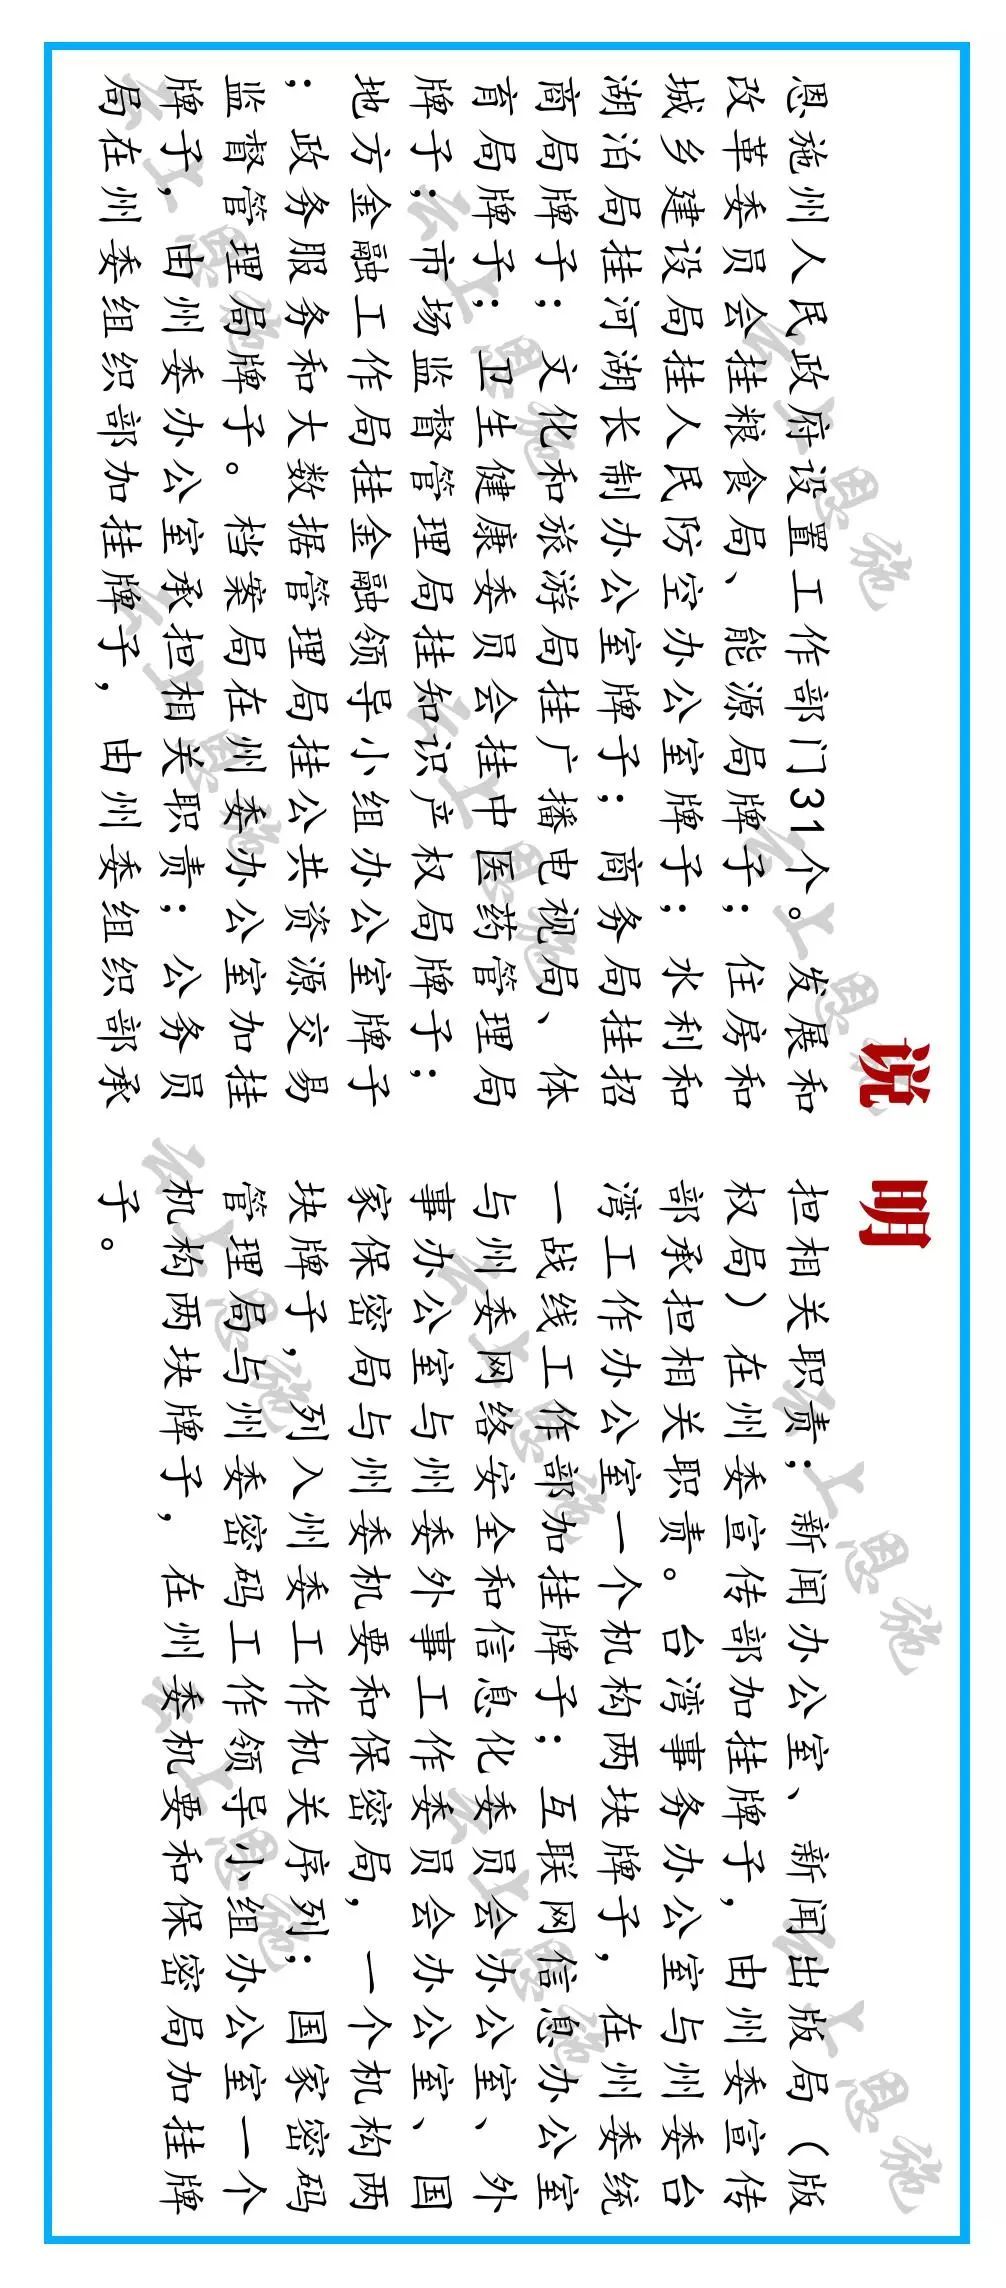 说明
恩施州人民政府设置工作部门31个。发展和
改革委员会挂粮食局、能源局牌子；住房和
城乡建设局挂人民防空办公室牌子；水利和
湖泊局挂河湖长制办公室牌子；商务局挂招
商局牌子；文化和旅游局挂广播电视局、体
育局牌子；卫生健康委员会挂中医药管理局
牌子；市场监督管理局挂知识产权局牌子；
地方金融工作局挂金融领导小组办公室牌子
；政务服务和大数据管理局挂公共资源交易
监督管理局牌子。档案局在州委办公室加挂
牌子，由州委办公室承担相关职责；公务员
局在州委组织部加挂牌子，由州委组织部承
担相关职责；新闻办公室、新闻出版局（版
权局）在州委宣传部加挂牌子，由州委宣传
部承担相关职责。台湾事务办公室与州委台
湾工作办公室一个机构两块牌子，在州委统
一战线工作部加挂牌子；互联网信息办公室
与州委网络安全和信息化委员会办公室、外
事办公室与州委外事工作委员会办公室、国
家保密局与州委机要和保密局，一个机构两
块牌子，列入州委工作机关序列；国家密码
管理局与州委密码工作领导小组办公室一个
机构两块牌子，在州委机要和保密局加挂牌
子。
云上恩施
云上恩施
云上恩施
云上恩施
云上恩施
云上恩施
云上恩施
云上恩施
云上恩施
云上恩施
云上恩施
云上恩施